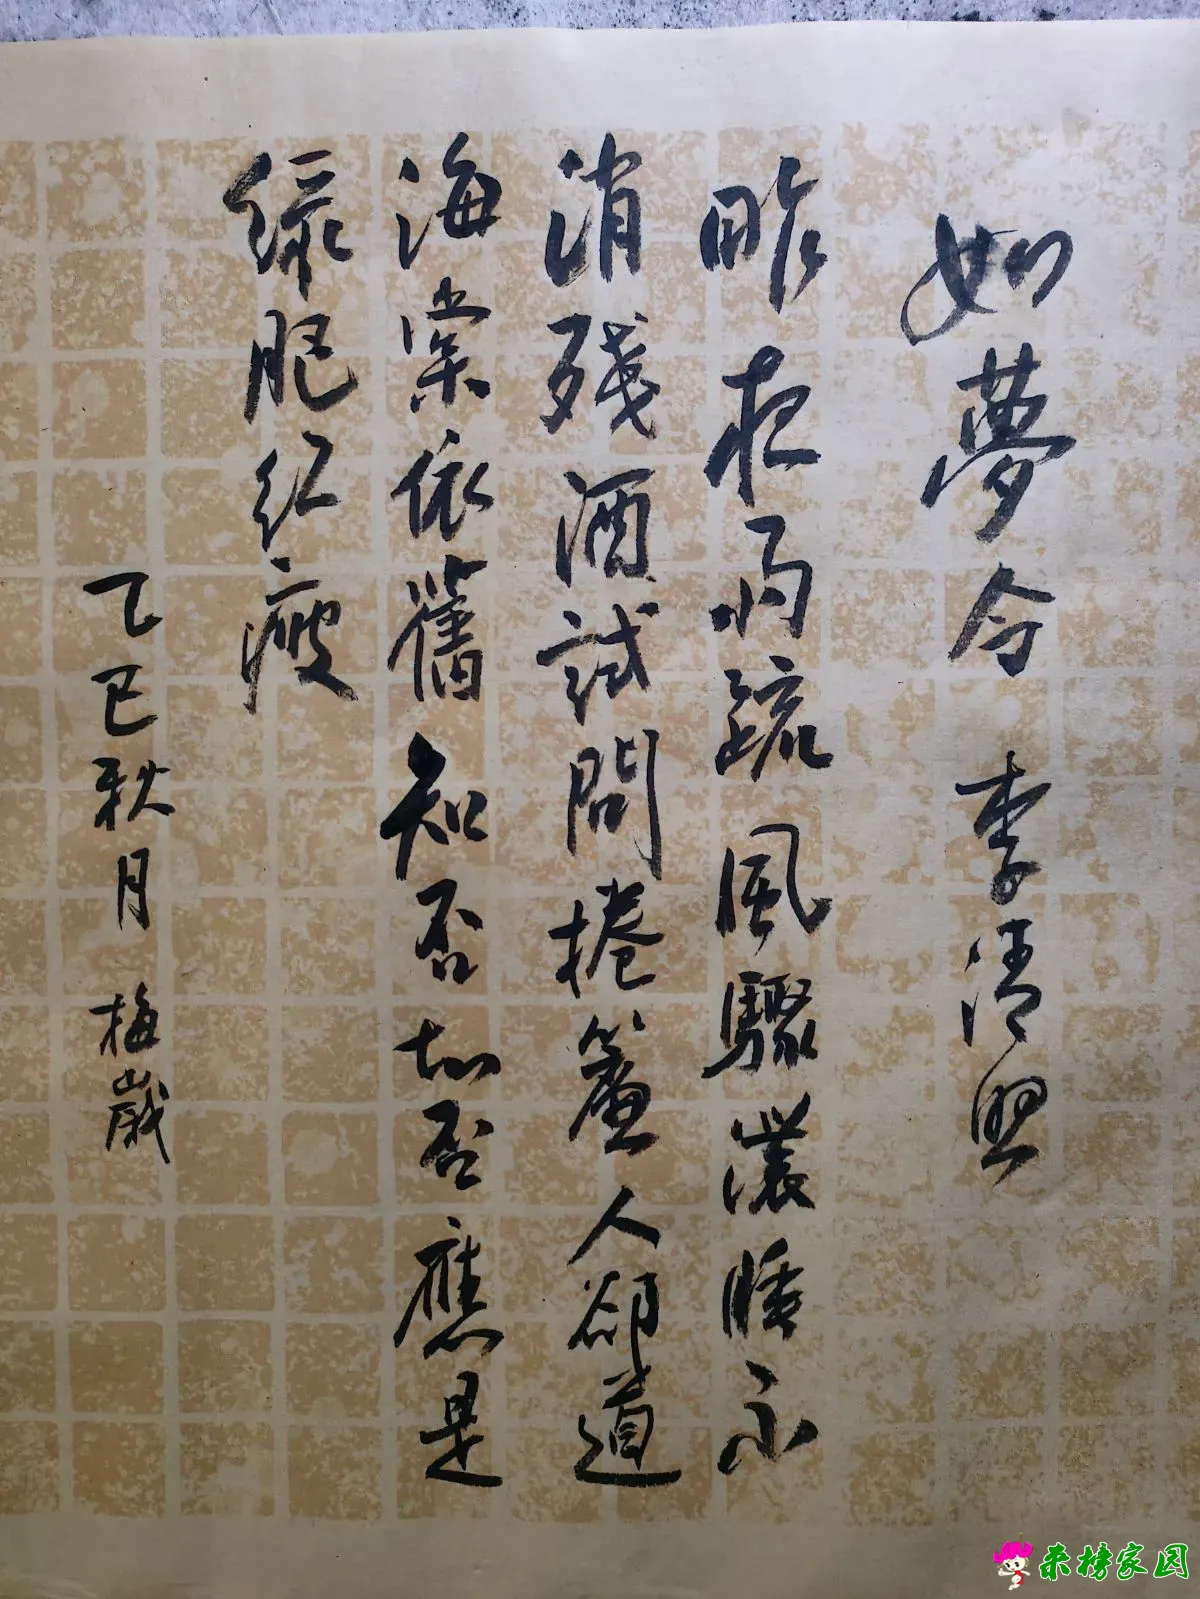 如夢令 李清照
昨夜雨疏風驟濃睡不
消殘酒試問捲簾人卻道
海棠依舊知否知否應是
緑肥紅瘦
乙巳秋月 梅嵗
来榜家园